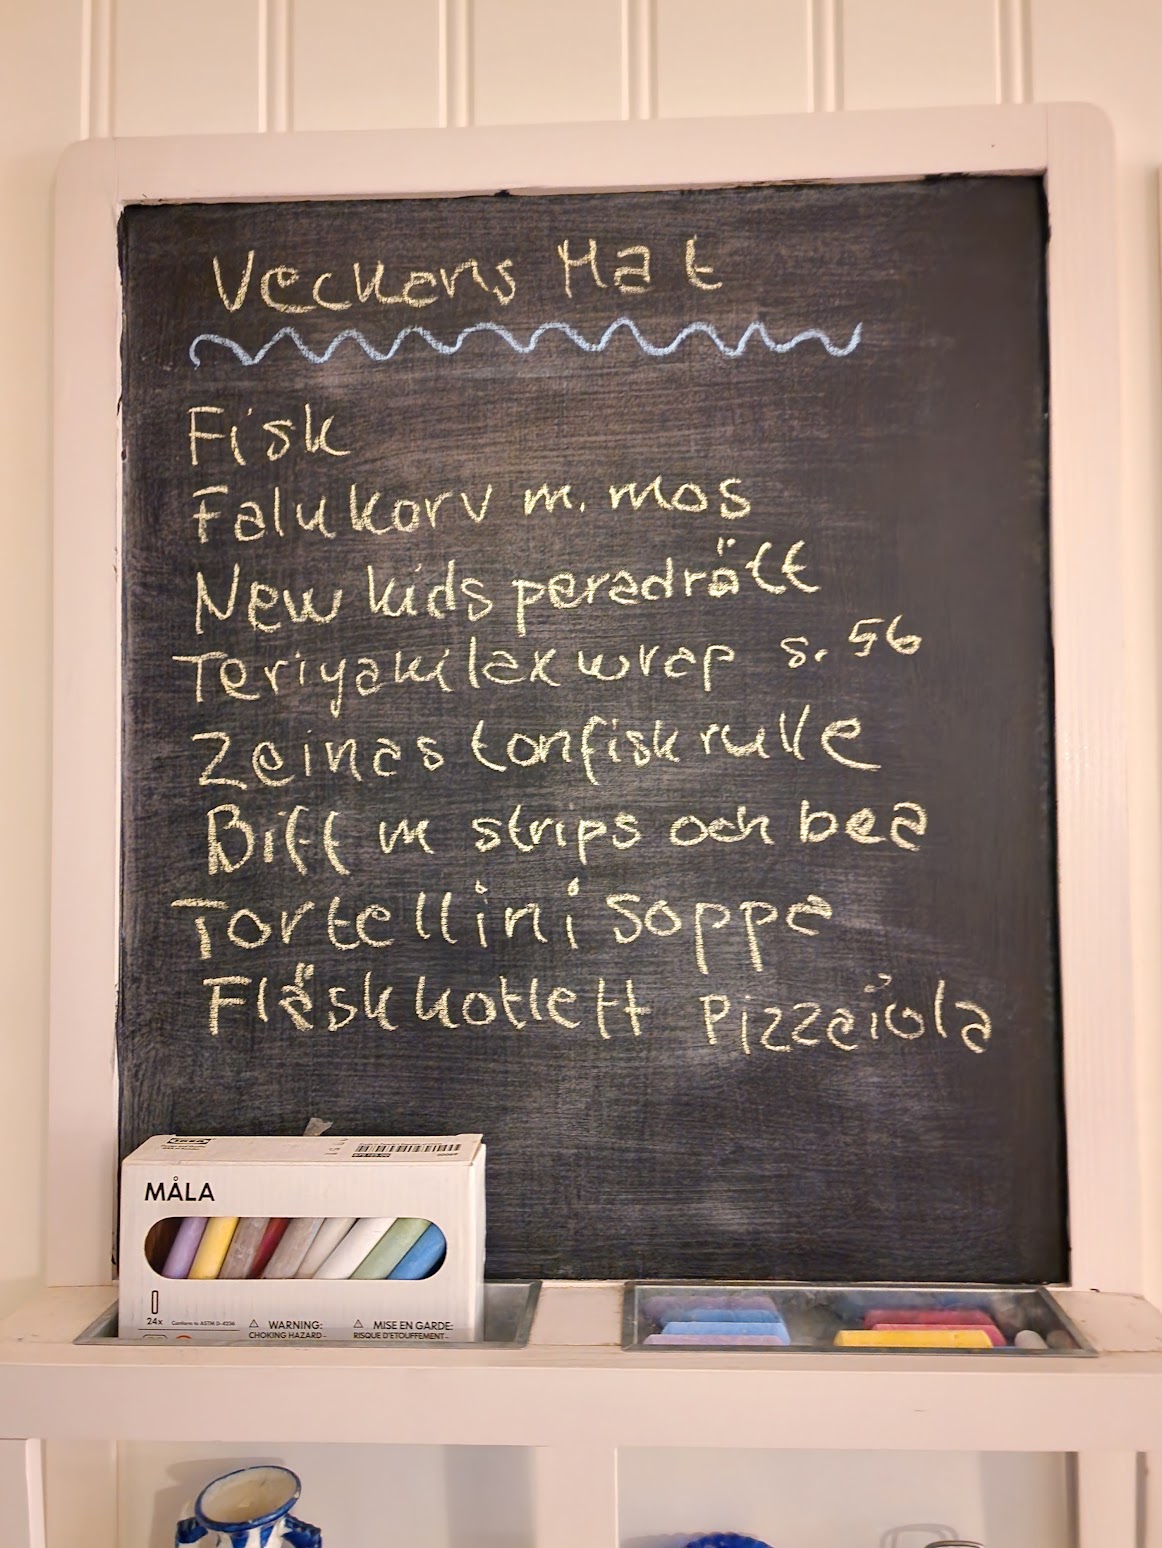 Veckans Mat
Fisk
Falukorv m. mos
New kids paradrätt
Teriyaki lax wrap s. 56
Zeinas tonfisk rulle
Biff m strips och bea
Tortellini soppa
Fläskkotlett Pizzaiola
IKEA
MÅLA
24x Conforms to ASTM D-4236
WARNING: CHOKING HAZARD -
MISE EN GARDE: RISQUE D'ETOUFFEMENT -